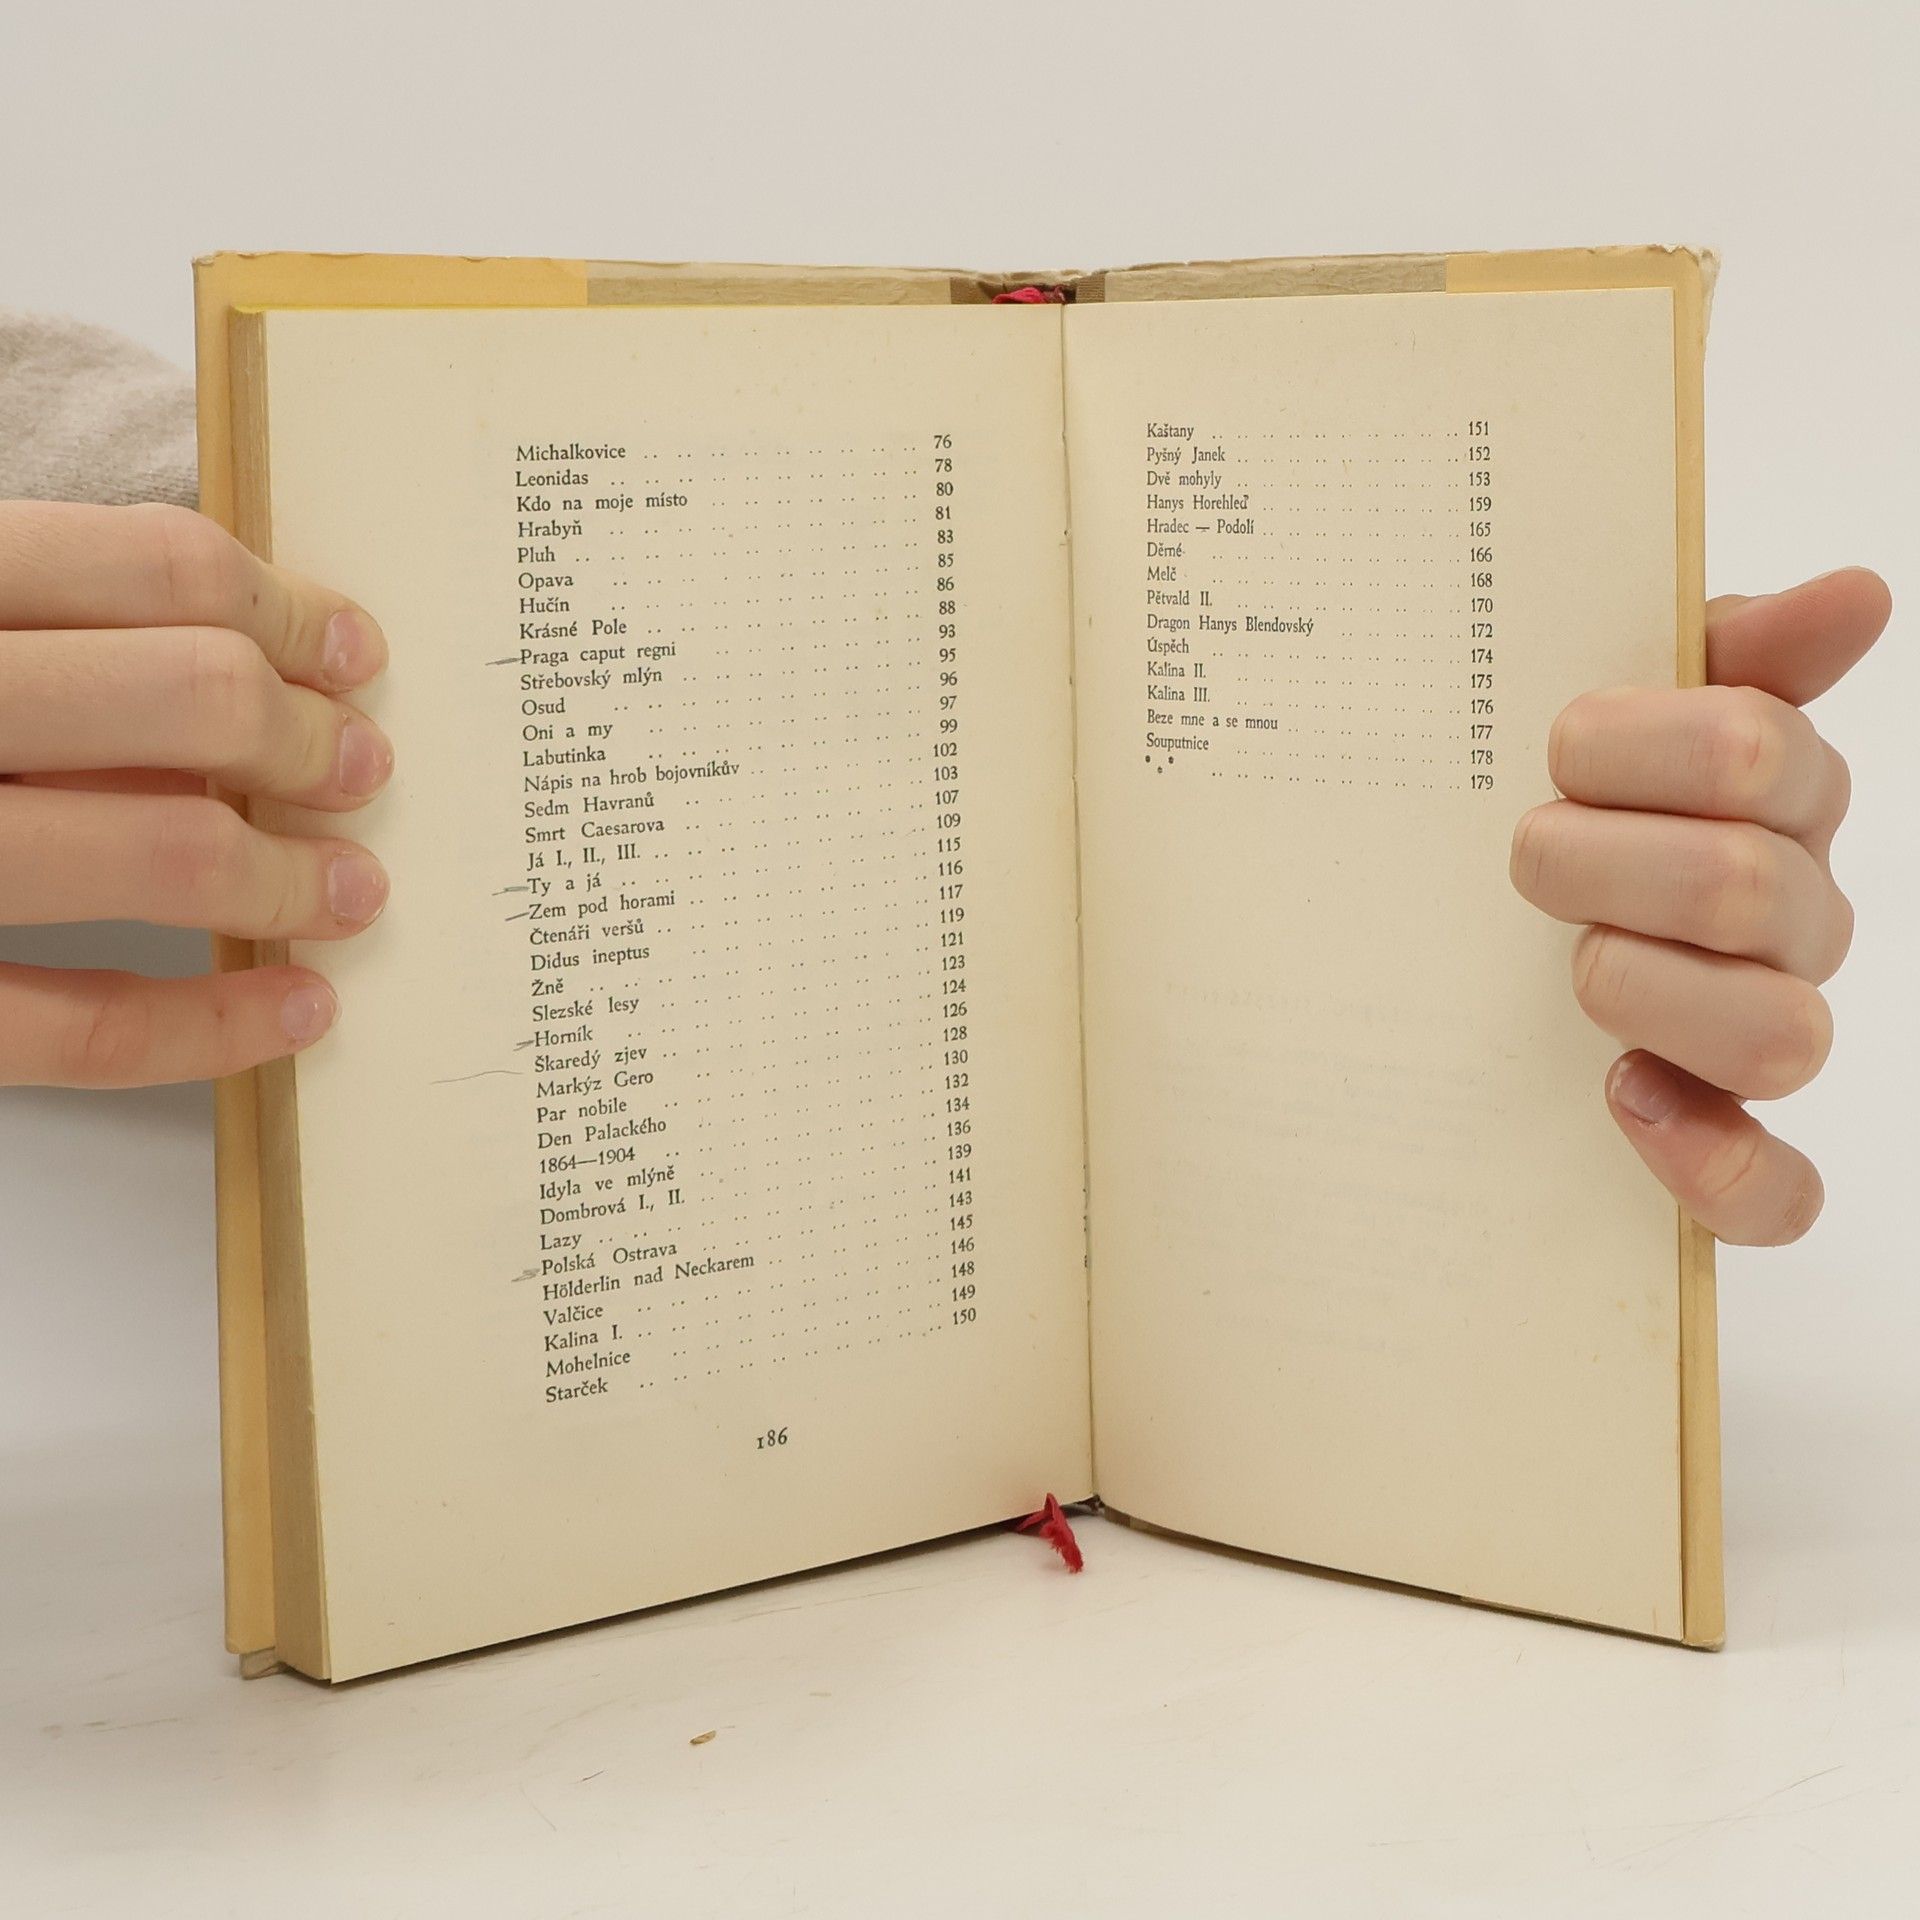 Michalkovice .. .. .. .. .. .. .. .. .. 76
Leonidas .. .. .. .. .. .. .. .. .. .. 78
Kdo na moje místo .. .. .. .. .. .. .. 80
Hrabyň .. .. .. .. .. .. .. .. .. .. 81
Pluh .. .. .. .. .. .. .. .. .. .. .. 83
Opava .. .. .. .. .. .. .. .. .. .. 85
Hučín .. .. .. .. .. .. .. .. .. .. 86
Krásné Pole .. .. .. .. .. .. .. .. .. 88
Praga caput regni .. .. .. .. .. .. .. 93
Střebovský mlýn .. .. .. .. .. .. .. .. 95
Osud .. .. .. .. .. .. .. .. .. .. 96
Oni a my .. .. .. .. .. .. .. .. .. 97
Labutinka .. .. .. .. .. .. .. .. .. 99
Nápis na hrob bojovníkův .. .. .. .. .. .. 102
Sedm Havranů .. .. .. .. .. .. .. .. 103
Smrt Caesarova .. .. .. .. .. .. .. .. 107
Já I., II., III. .. .. .. .. .. .. .. .. .. 109
Ty a já .. .. .. .. .. .. .. .. .. .. 115
Zem pod horami .. .. .. .. .. .. .. .. 116
Čtenáři veršů .. .. .. .. .. .. .. .. .. 117
Didus ineptus .. .. .. .. .. .. .. .. 119
Žně .. .. .. .. .. .. .. .. .. .. .. 121
Slezské lesy .. .. .. .. .. .. .. .. .. 123
Horník .. .. .. .. .. .. .. .. .. .. 124
Škaredý zjev .. .. .. .. .. .. .. .. .. 126
Markýz Gero .. .. .. .. .. .. .. .. 128
Par nobile .. .. .. .. .. .. .. .. .. 130
Den Palackého .. .. .. .. .. .. .. .. 132
1864—1904 .. .. .. .. .. .. .. .. .. 134
Idyla ve mlýně .. .. .. .. .. .. .. .. 136
Dombrová I., II. .. .. .. .. .. .. .. .. 139
Lazy .. .. .. .. .. .. .. .. .. .. .. 141
Polská Ostrava .. .. .. .. .. .. .. .. 143
Hölderlin nad Neckarem .. .. .. .. .. .. 145
Valčice .. .. .. .. .. .. .. .. .. .. 146
Kalina I. .. .. .. .. .. .. .. .. .. .. 148
Mohelnice .. .. .. .. .. .. .. .. .. 149
Starček .. .. .. .. .. .. .. .. .. .. 150
186
Kaštany .. .. .. .. .. .. .. .. .. .. 151
Pyšný Janek .. .. .. .. .. .. .. .. .. 152
Dvě mohyly .. .. .. .. .. .. .. .. .. 153
Hanys Horehleď .. .. .. .. .. .. .. .. 159
Hradec — Podolí .. .. .. .. .. .. .. .. 165
Děrné .. .. .. .. .. .. .. .. .. .. 166
Melč .. .. .. .. .. .. .. .. .. .. 168
Pětvald II. .. .. .. .. .. .. .. .. .. 170
Dragon Hanys Blendovský .. .. .. .. .. 172
Úspěch .. .. .. .. .. .. .. .. .. .. 174
Kalina II. .. .. .. .. .. .. .. .. .. 175
Kalina III. .. .. .. .. .. .. .. .. .. 176
Beze mne a se mnou .. .. .. .. .. .. .. 177
Souputnice .. .. .. .. .. .. .. .. .. 178
* * * .. .. .. .. .. .. .. .. .. .. 179